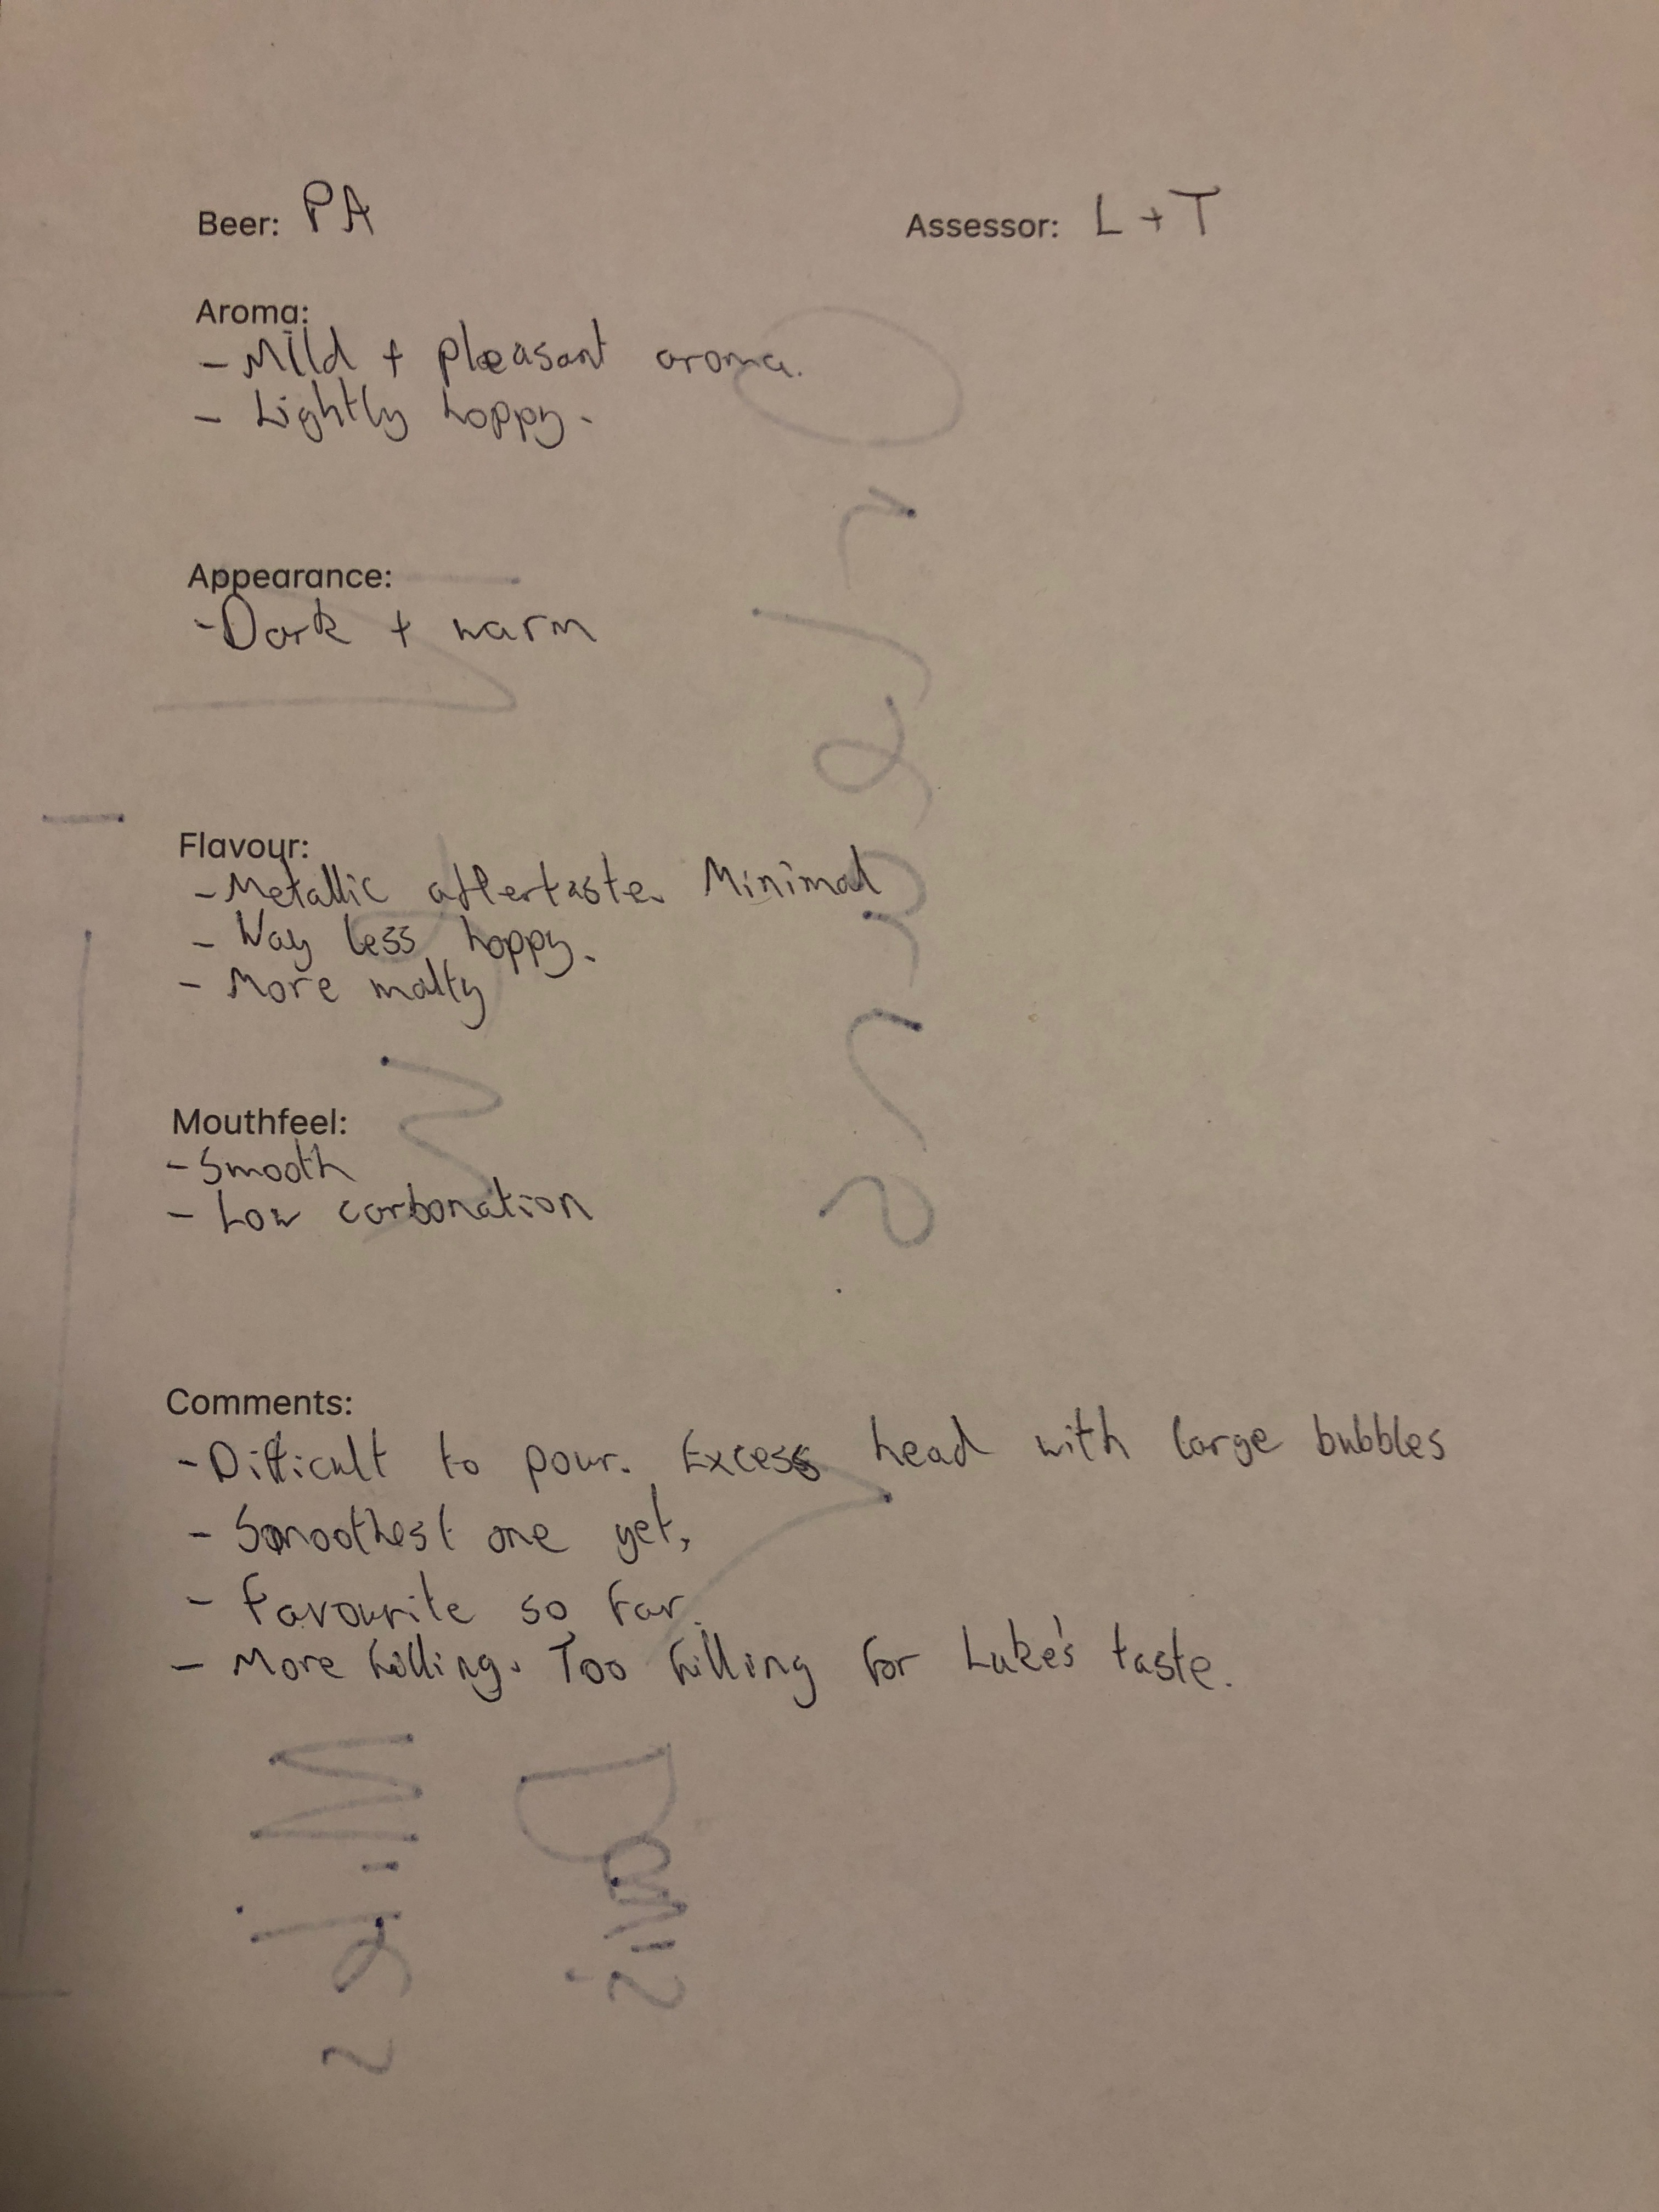 Beer: PA
Assessor: L + T
Aroma:
- Mild + pleasant aroma.
- Lightly hoppy.
Appearance:
- Dark + warm
Flavour:
- Metallic aftertaste. Minimal
- Way less hoppy.
- More malty
Mouthfeel:
- Smooth
- Low carbonation
Comments:
- Difficult to pour. Excess head with large bubbles
- Smoothest one yet,
- Favourite so far.
- More filling. Too filling for Luke's taste.